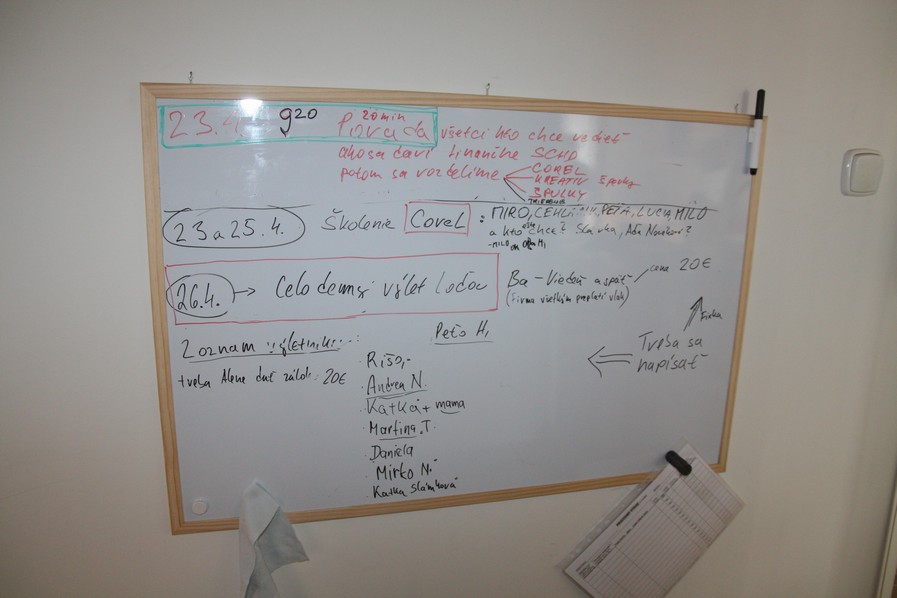 23.4. 9²⁰ 20min Porada všetci kto chce vedieť
ako sa darí finančne SCHD
potom sa rozdelíme COREL
KREATIV Šperky
ŠPULKY
TRIEDENIE
23 a 25.4. Školenie Corel : MIRO, CEHLI, PEŤA, LUCIA, MILO
a kto ešte chce? Slavka, Aďa Nováková?
- MILO
26.4. → Celodenný výlet loďou
Ba - Viedeň a späť cena 20€
(Firma všetkým preplatí vlak)
Zoznam výletníkov:
treba Alene dať záloh. 20€
Peťo H.
Rišo
Andrea N.
Katka + mama
Martina T.
Daniela
Mirko N.
Katka Slámková
Treba sa
napísať
Firka